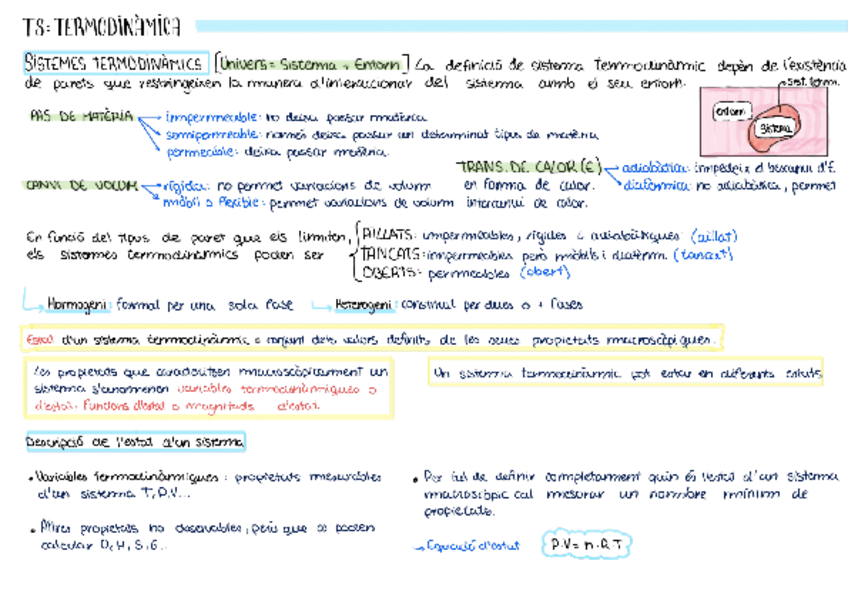 T5: TERMODINÀMICA
SISTEMES TERMODINÀMICS [Univers = Sistema + Entorn] La definició de sistema termodinàmic depèn de l'existència
de parets que restringeixen la manera d'interaccionar del sistema amb el seu entorn.
sist. term.
entorn
Sistema
PAS DE MATÈRIA
impermeable: no deixa passar matèria
semipermeable: només deixa passar un determinat tipus de matèria
permeable: deixa passar matèria.
TRANS. DE CALOR (E)
en forma de calor.
adiabàtica: impedeix el bescanvi d'E.
diatèrmica: no adiabàtica, permet
intercanvi de calor.
CANVI DE VOLUM
rígida: no permet variacions de volum
mòbil o flexible: permet variacions de volum
En funció del tipus de paret que els limiten,
els sistemes termodinàmics poden ser
AÏLLATS: impermeables, rígides i adiabàtiques (aïllat)
TANCATS: impermeables però mòbils i diatèrm. (tancat)
OBERTS: permeables (obert)
Homogeni: format per una sola fase
Heterogeni: constituït per dues o + fases
Estat d'un sistema termodinàmic = conjunt dels valors definits de les seues propietats macroscòpiques.
Les propietats que caracteritzen macroscòpicament un
sistema s'anomenen variables termodinàmiques o
d'estat. Funcions d'estat o magnituds d'estat.
Un sistema termodinàmic pot estar en diferents estats
Descripció de l'estat d'un sistema
• Variables termodinàmiques: propietats mesurables
d'un sistema T, P, V...
• Altres propietats no observables, però que es poden
calcular U, H, S, G...
• Per tal de definir completament quin és l'estat d'un sistema
macroscòpic cal mesurar un nombre mínim de
propietats.
→ Equació d'estat
P·V = n·R·T